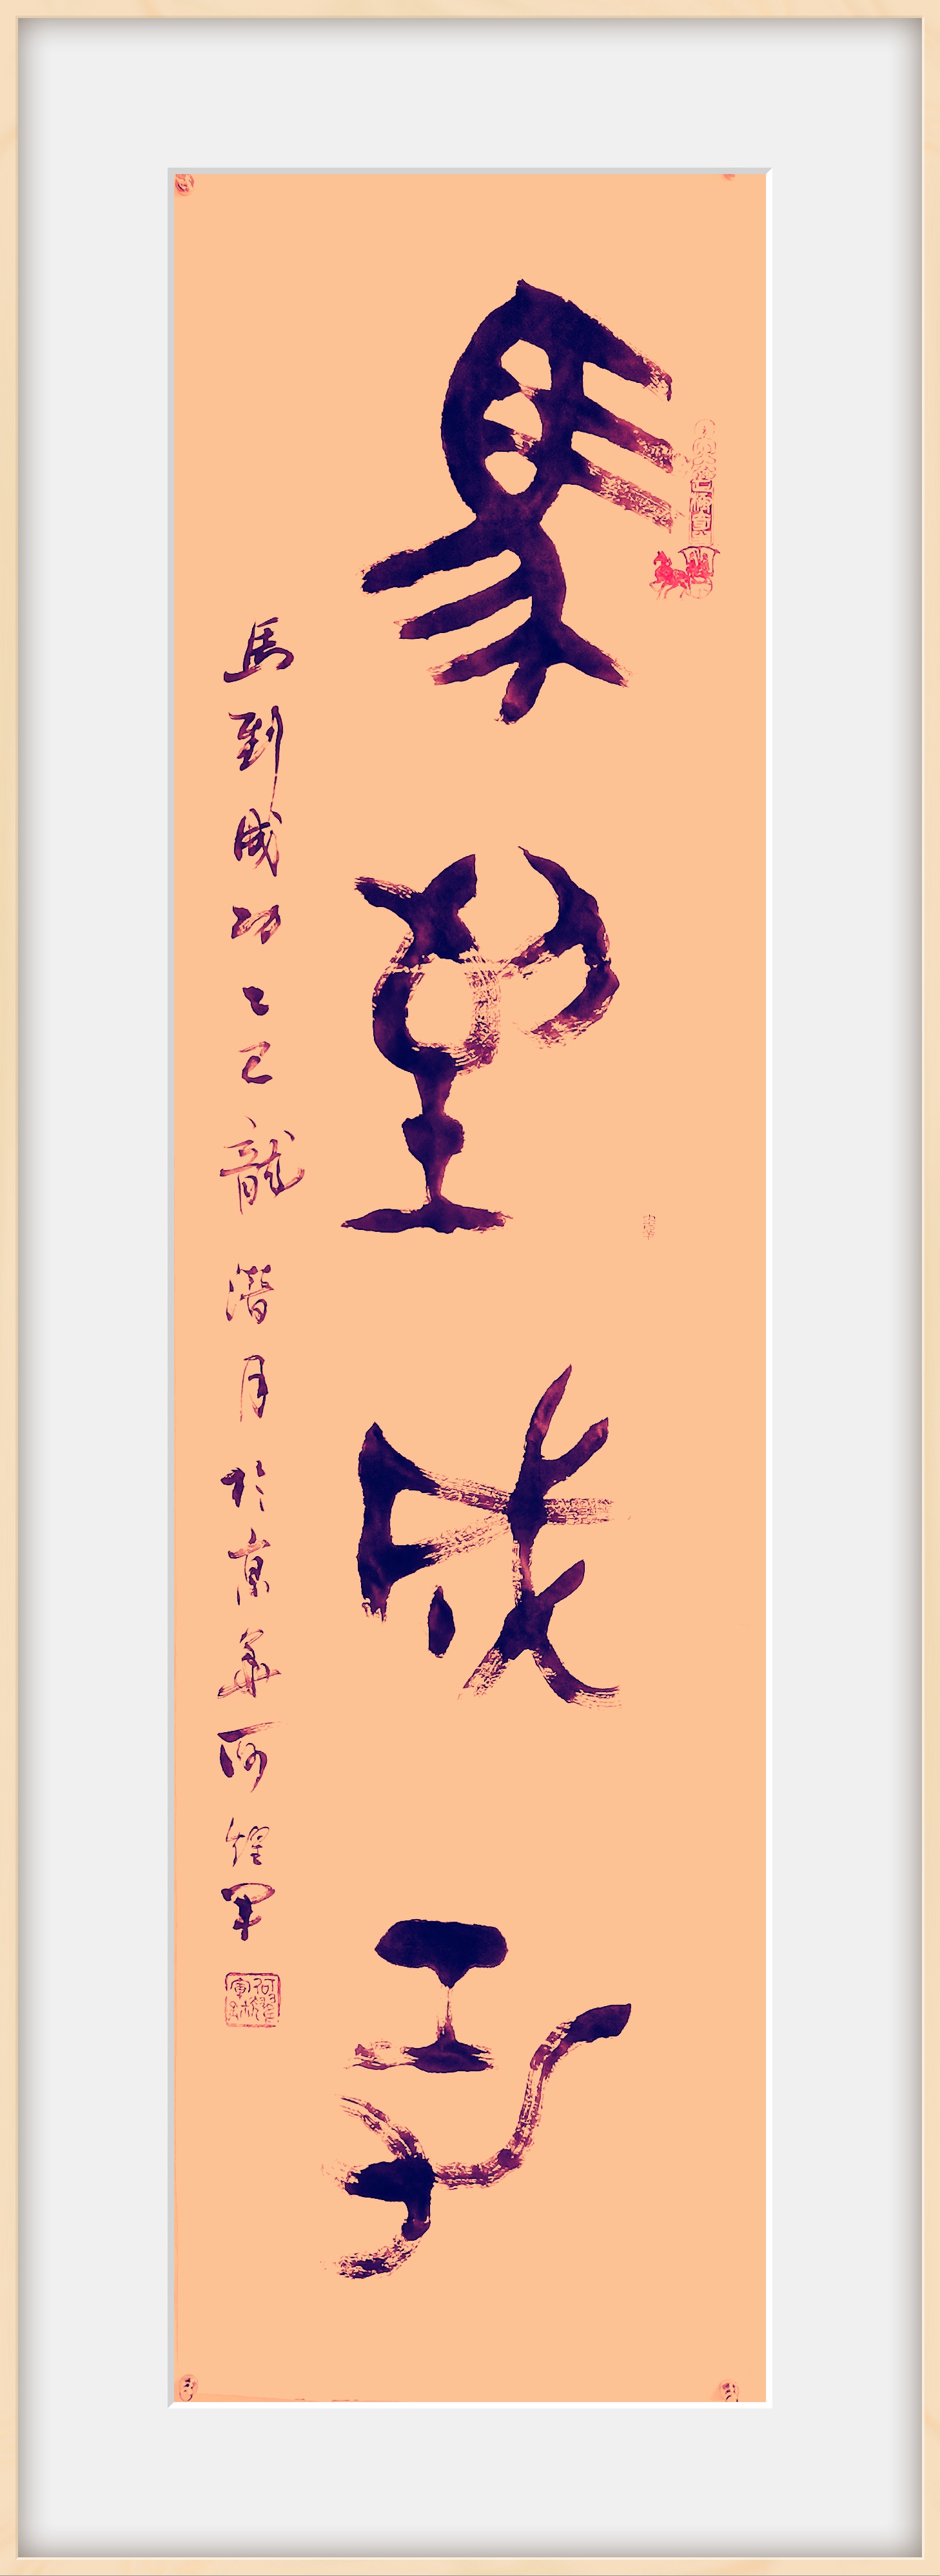 馬到成功
馬到成功乙巳龍潛月於京華何煌軍